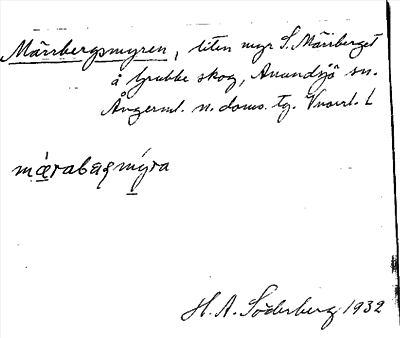 Märrbergsmyren, liten myr S. Märrberget
å Grubbe skog, Anundsjö sn.
Ångerml. n. doms. tg. Vnorrl. L
mǽrabaʂmýra
H. A. Söderberg 1932